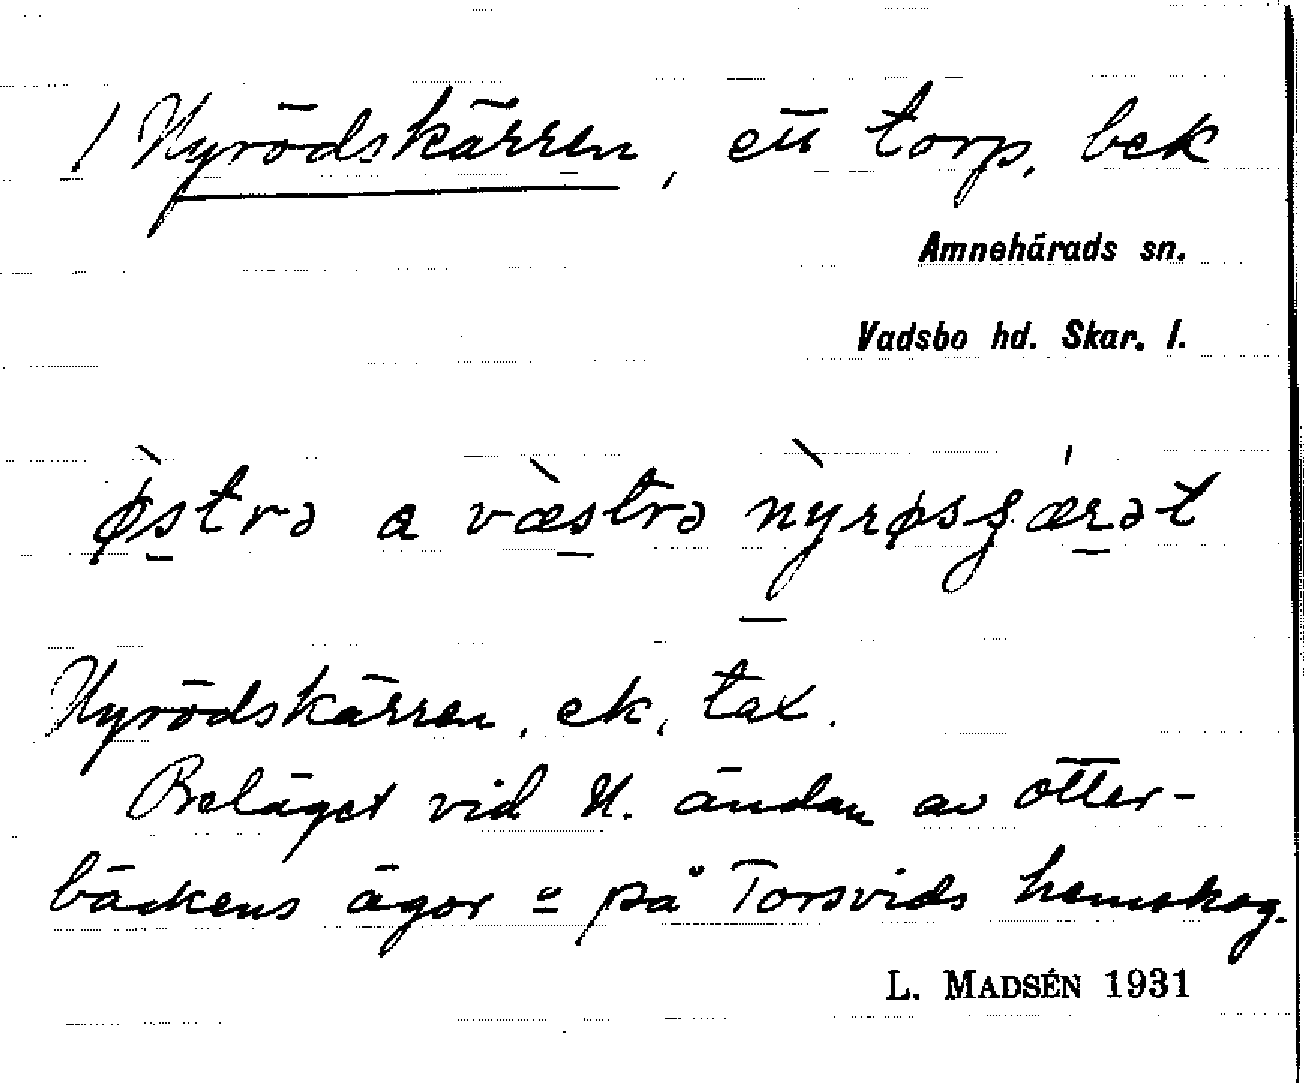 / Nyrödskärren, ett torp, bek
Amnehärads sn.
Vadsbo hd. Skar. l.
ø̀strə a væ̀strə nỳrøsʃǽrət
Nyrödskärren, ek, tax.
Beläget vid N. ändan av Otter-
bäckens ägor o på Torsvids hemskog.
L. MADSÉN 1931